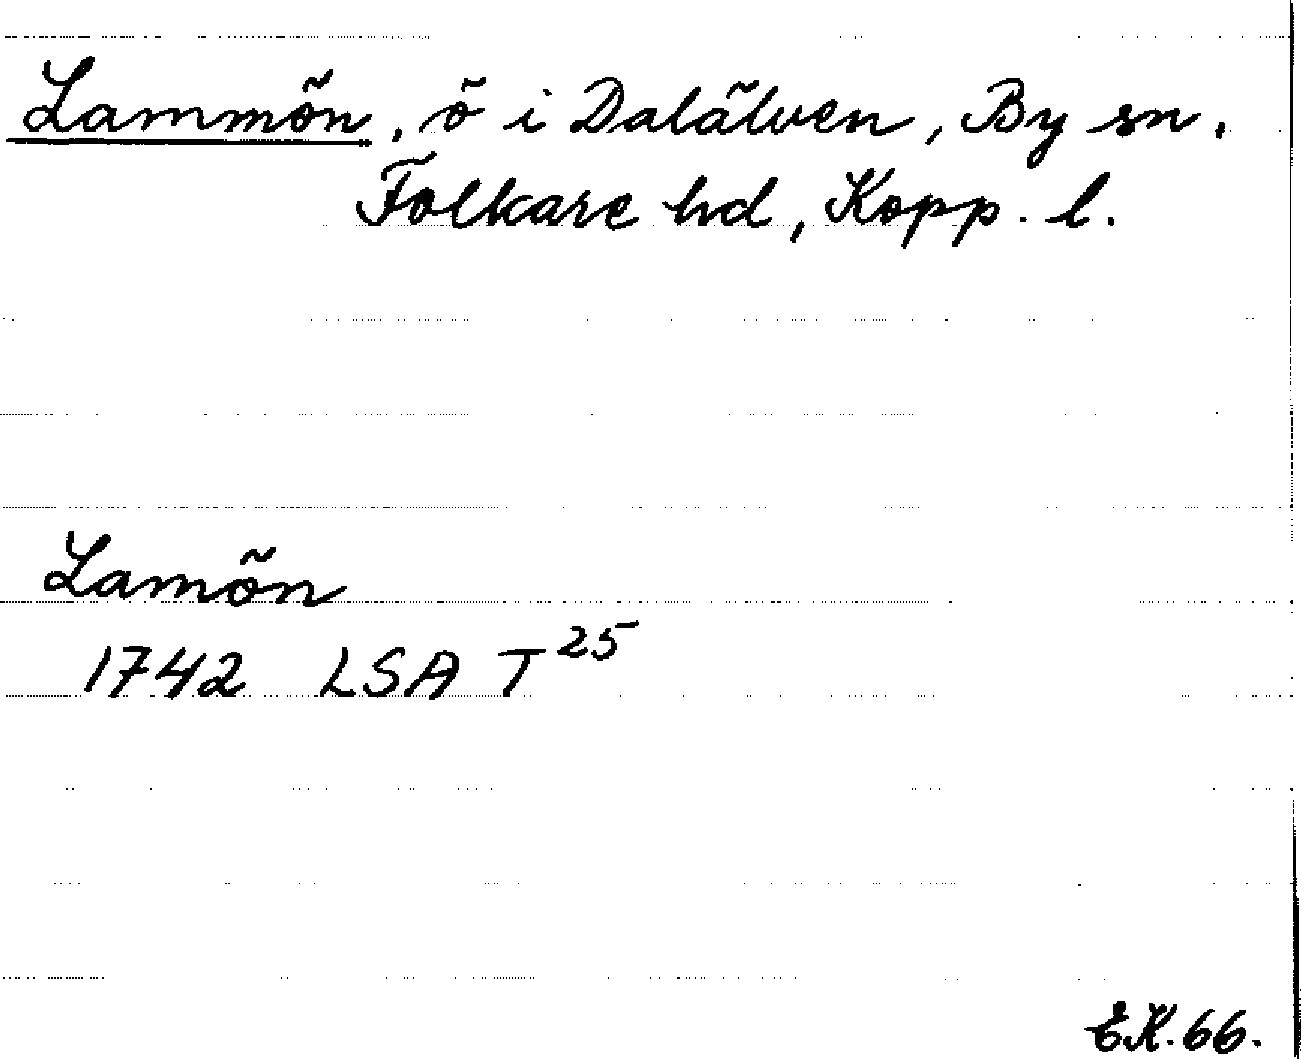 Lammön, ö i Dalälven, By sn,
Folkare hd, Kopp. l.
Lamön
1742 LSA T²⁵
EK.66.